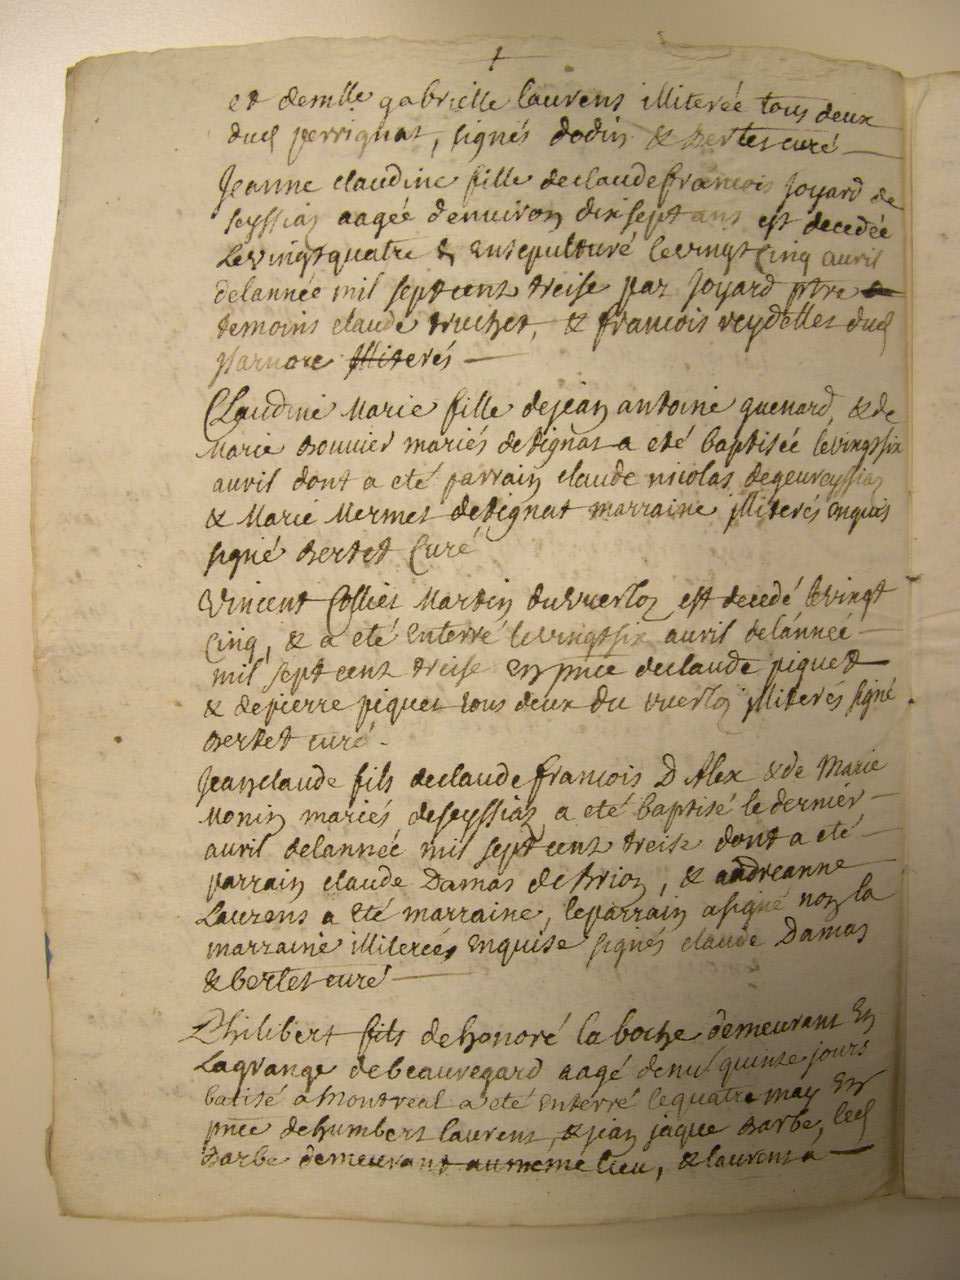 et demlle gabrielle laurens illiterée tous deux
dud perrignat, signés dodin & bertet curé
Jeanne claudine fille declaude francois Joyard de
seyssiaz aagée denuiron dix sept ans est decedée
Levingtquatre & Ensepulturé levingt Cinq auril
delannée mil sept cent treise par Joyard ptre
temoins claude truchet, & francois reydellet dud
illiterés
Claudine Marie fille dejean antoine guenard, & de
Marie bouuier mariés detignat a eté baptisée levingtsix
auril dont a eté parrain claude nicolas degeureyssiaz
& Marie Mermet detignat marraine illiterés enquis
signé bertet Curé
Vincent Collier Martin duvuerloz est decedé levingt
Cinq, & a eté Enterré levingtsix auril delannée
mil sept cent treise En pnce declaude piquet
& depierre piquet tous deux du vuerloz illiterés signé
bertet curé
Jean claude fils declaude francois D Alex & de Marie
Monin mariés deseyssiaz a eté baptisé le dernier
auril delannée mil sept cent treise dont a eté
parrain claude Damas de brion, & andreanne
Laurens a Eté marraine, leparrain asigné non la
marraine illiterées Enquise signés claude Damas
& bertet curé
Philibert fils de honoré la boche demeurant En
Lagrange debeauregard aagé denui quinze jours
batisé a Montreal a eté Enterré lequatre may En
pnce dehumbert laurent, & jean jaque barbe, led
Barbe demeurant aumemé lieu, & laurent a